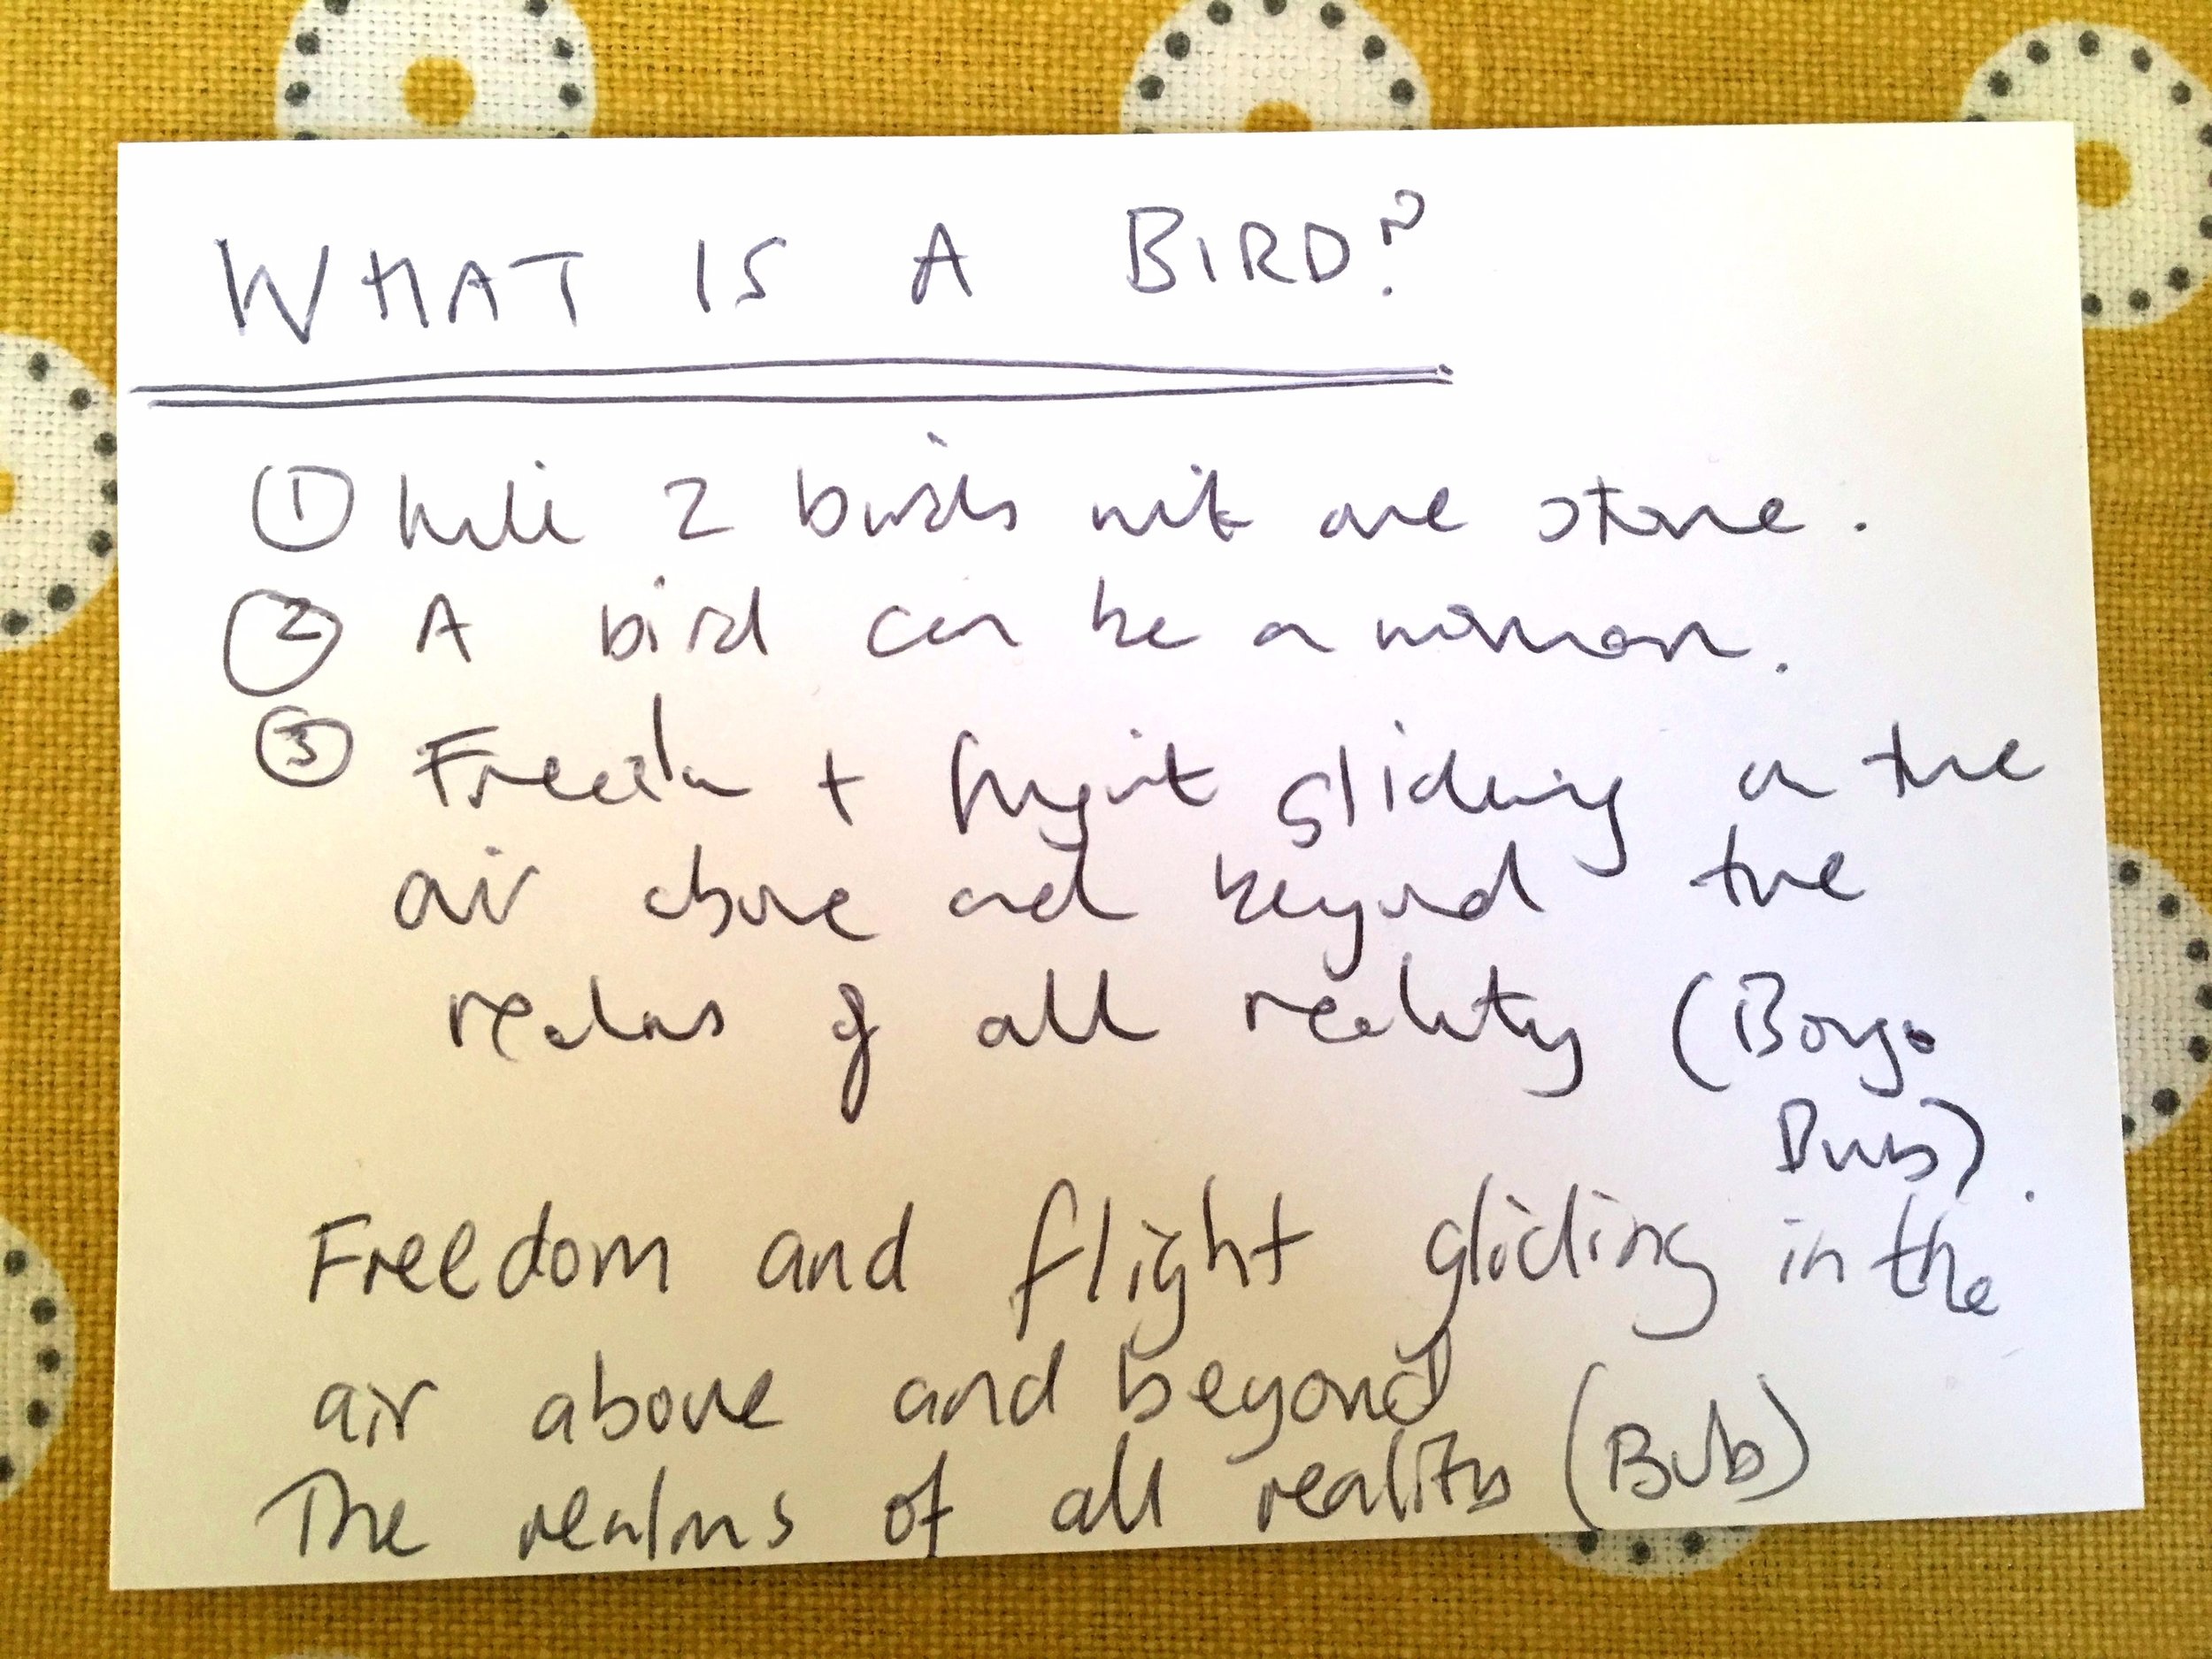 WHAT IS A BIRD?
① Kill 2 birds with one stone.
② A bird can be a woman.
③ Freedom + flight gliding in the
air above and beyond the
realms of all reality (
).
Freedom and flight gliding in the
air above and beyond
The realms of all reality (Bub)